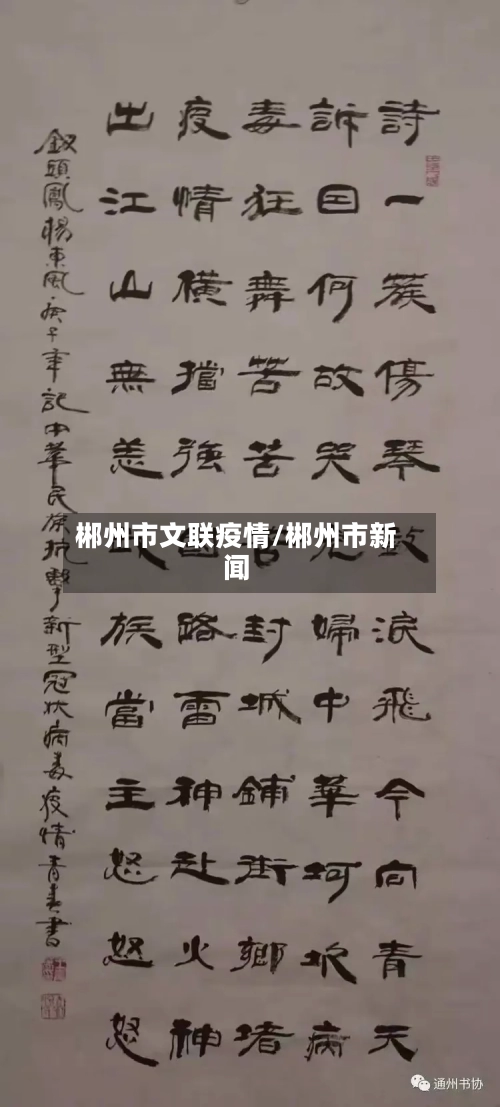 詩一蔟傷琴致淚飛今向青天
訴國何故哭 婦中華坷坎病
毒狂舞苦苦 封城鋪街鄉堵
疫情横擋強國路雷神赴火神
出江山無恙 族當主怒怒怒
釵頭鳳楊東風庚子年記中華民族抗擊新型冠狀病毒疫情青春書
郴州市文联疫情/郴州市新
闻
通州书协